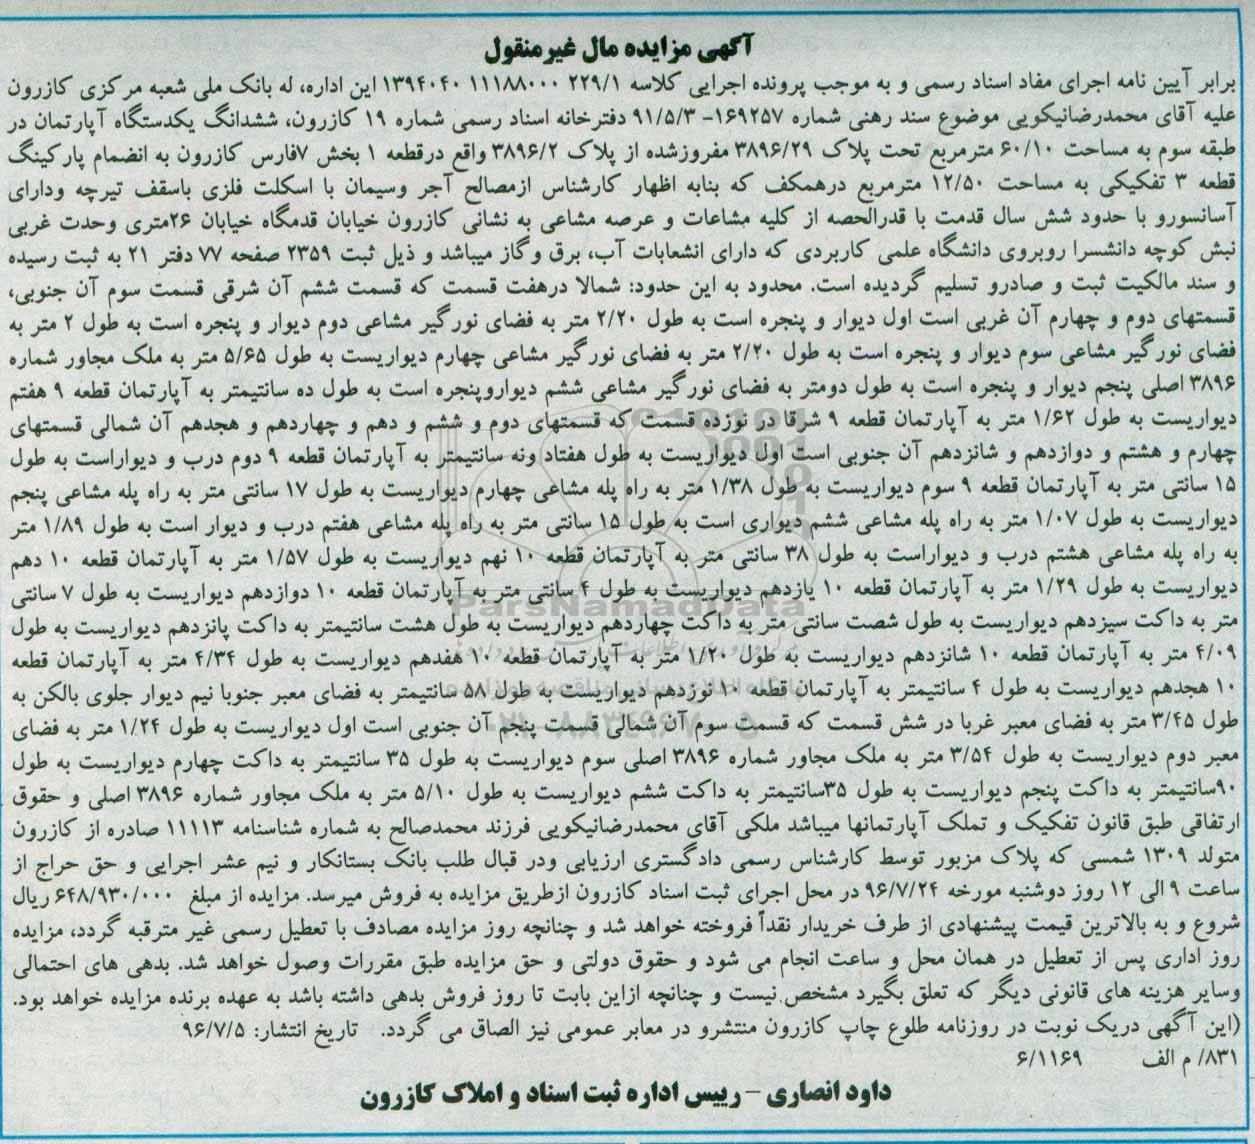 آگهی مزایده مال غیرمنقول
برابر آیین نامه اجرای مفاد اسناد رسمی و به موجب پرونده اجرایی کلاسه ۲۲۹/۱ ۱۳۹۴۰۴۰ ۱۱۱۸۸۰۰۰ این اداره، له بانک ملی شعبه مرکزی کازرون
علیه آقای محمدرضانیکویی موضوع سند رهنی شماره ۱۶۹۲۵۷- ۹۱/۵/۳ دفترخانه اسناد رسمی شماره ۱۹ کازرون، ششدانگ یکدستگاه آپارتمان در
طبقه سوم به مساحت ۶۰/۱۰ مترمربع تحت پلاک ۳۸۹۶/۲۹ مفروزشده از پلاک ۳۸۹۶/۲ واقع درقطعه ۱ بخش ۷فارس کازرون به انضمام پارکینگ
قطعه ۳ تفکیکی به مساحت ۱۲/۵۰ مترمربع درهمکف که بنابه اظهار کارشناس ازمصالح آجر وسیمان با اسکلت فلزی باسقف تیرچه ودارای
آسانسورو با حدود شش سال قدمت با قدرالحصه از کلیه مشاعات و عرصه مشاعی به نشانی کازرون خیابان قدمگاه خیابان ۲۶متری وحدت غربی
نبش کوچه دانشسرا روبروی دانشگاه علمی کاربردی که دارای انشعابات آب، برق وگاز میباشد و ذیل ثبت ۲۳۵۹ صفحه ۷۷ دفتر ۲۱ به ثبت رسیده
و سند مالکیت ثبت و صادرو تسلیم گردیده است. محدود به این حدود: شمالا درهفت قسمت که قسمت ششم آن شرقی قسمت سوم آن جنوبی،
قسمتهای دوم و چهارم آن غربی است اول دیوار و پنجره است به طول ۲/۲۰ متر به فضای نورگیر مشاعی دوم دیوار و پنجره است به طول ۲ متر به
فضای نورگیر مشاعی سوم دیوار و پنجره است به طول ۲/۲۰ متر به فضای نورگیر مشاعی چهارم دیواریست به طول ۵/۶۵ متر به ملک مجاور شماره
۳۸۹۶ اصلی پنجم دیوار و پنجره است به طول دومتر به فضای نورگیر مشاعی ششم دیواروپنجره است به طول ده سانتیمتر به آپارتمان قطعه ۹ هفتم
دیواریست به طول ۱/۶۲ متر به آپارتمان قطعه ۹ شرقا در نوزده قسمت که قسمتهای دوم و ششم و دهم و چهاردهم و هجدهم آن شمالی قسمتهای
چهارم و هشتم و دوازدهم و شانزدهم آن جنوبی است اول دیواریست به طول هفتاد ونه سانتیمتر به آپارتمان قطعه ۹ دوم درب و دیواراست به طول
۱۵ سانتی متر به آپارتمان قطعه ۹ سوم دیواریست به طول ۱/۳۸ متر به راه پله مشاعی چهارم دیواریست به طول ۱۷ سانتی متر به راه پله مشاعی پنجم
دیواریست به طول ۱/۰۷ متر به راه پله مشاعی ششم دیواری است به طول ۱۵ سانتی متر به راه پله مشاعی هفتم درب و دیوار است به طول ۱/۸۹ متر
به راه پله مشاعی هشتم درب و دیواراست به طول ۳۸ سانتی متر به آپارتمان قطعه ۱۰ نهم دیواریست به طول ۱/۵۷ متر به آپارتمان قطعه ۱۰ دهم
دیواریست به طول ۱/۲۹ متر به آپارتمان قطعه ۱۰ یازدهم دیواریست به طول ۴ سانتی متر به آپارتمان قطعه ۱۰ دوازدهم دیواریست به طول ۷ سانتی
متر به داکت سیزدهم دیواریست به طول شصت سانتی متر به داکت چهاردهم دیواریست به طول هشت سانتیمتر به داکت پانزدهم دیواریست به طول
۴/۰۹ متر به آپارتمان قطعه ۱۰ شانزدهم دیواریست به طول ۱/۲۰ متر به آپارتمان قطعه ۱۰ هفدهم دیواریست به طول ۴/۳۴ متر به آپارتمان قطعه
۱۰ هجدهم دیواریست به طول ۴ سانتیمتر به آپارتمان قطعه ۱۰ نوزدهم دیواریست به طول ۵۸ سانتیمتر به فضای معبر جنوبا نیم دیوار جلوی بالکن به
طول ۳/۴۵ متر به فضای معبر غربا در شش قسمت که قسمت سوم آن شمالی قسمت پنجم آن جنوبی است اول دیواریست به طول ۱/۲۴ متر به فضای
معبر دوم دیواریست به طول ۳/۵۴ متر به ملک مجاور شماره ۳۸۹۶ اصلی سوم دیواریست به طول ۳۵ سانتیمتر به داکت چهارم دیواریست به طول
۹۰سانتیمتر به داکت پنجم دیواریست به طول ۳۵سانتیمتر به داکت ششم دیواریست به طول ۵/۱۰ متر به ملک مجاور شماره ۳۸۹۶ اصلی و حقوق
ارتفاقی طبق قانون تفکیک و تملک آپارتمانها میباشد ملکی آقای محمدرضانیکویی فرزند محمدصالح به شماره شناسنامه ۱۱۱۱۳ صادره از کازرون
متولد ۱۳۰۹ شمسی که پلاک مزبور توسط کارشناس رسمی دادگستری ارزیابی ودر قبال طلب بانک بستانکار و نیم عشر اجرایی و حق حراج از
ساعت ۹ الی ۱۲ روز دوشنبه مورخه ۹۶/۷/۲۴ در محل اجرای ثبت اسناد کازرون ازطریق مزایده به فروش میرسد. مزایده از مبلغ ۶۴۸/۹۳۰/۰۰۰ ریال
شروع و به بالاترین قیمت پیشنهادی از طرف خریدار نقداً فروخته خواهد شد و چنانچه روز مزایده مصادف با تعطیل رسمی غیر مترقبه گردد، مزایده
روز اداری پس از تعطیل در همان محل و ساعت انجام می شود و حقوق دولتی و حق مزایده طبق مقررات وصول خواهد شد. بدهی های احتمالی
وسایر هزینه های قانونی دیگر که تعلق بگیرد مشخص نیست و چنانچه ازاین بابت تا روز فروش بدهی داشته باشد به عهده برنده مزایده خواهد بود.
(این آگهی دریک نوبت در روزنامه طلوع چاپ کازرون منتشرو در معابر عمومی نیز الصاق می گردد. تاریخ انتشار: ۹۶/۷/۵
۸۳۱/ م الف ۶/۱۱۶۹
داود انصاری – رییس اداره ثبت اسناد و املاک کازرون
ParsNamadData